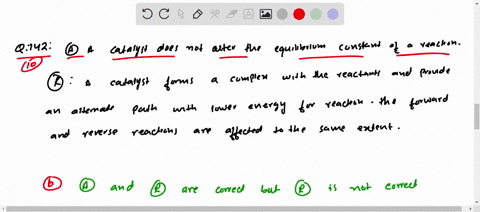 Q.142: (A) A catalyst does not alter the equilibrium constant of a reaction.
(10)
(R): A catalyst forms a complex with the reactants and provide
an alternate path with lower energy for reaction. the forward
and reverse reactions are affected to the same extent.
(b) (A) and (R) are correct but (R) is not correct